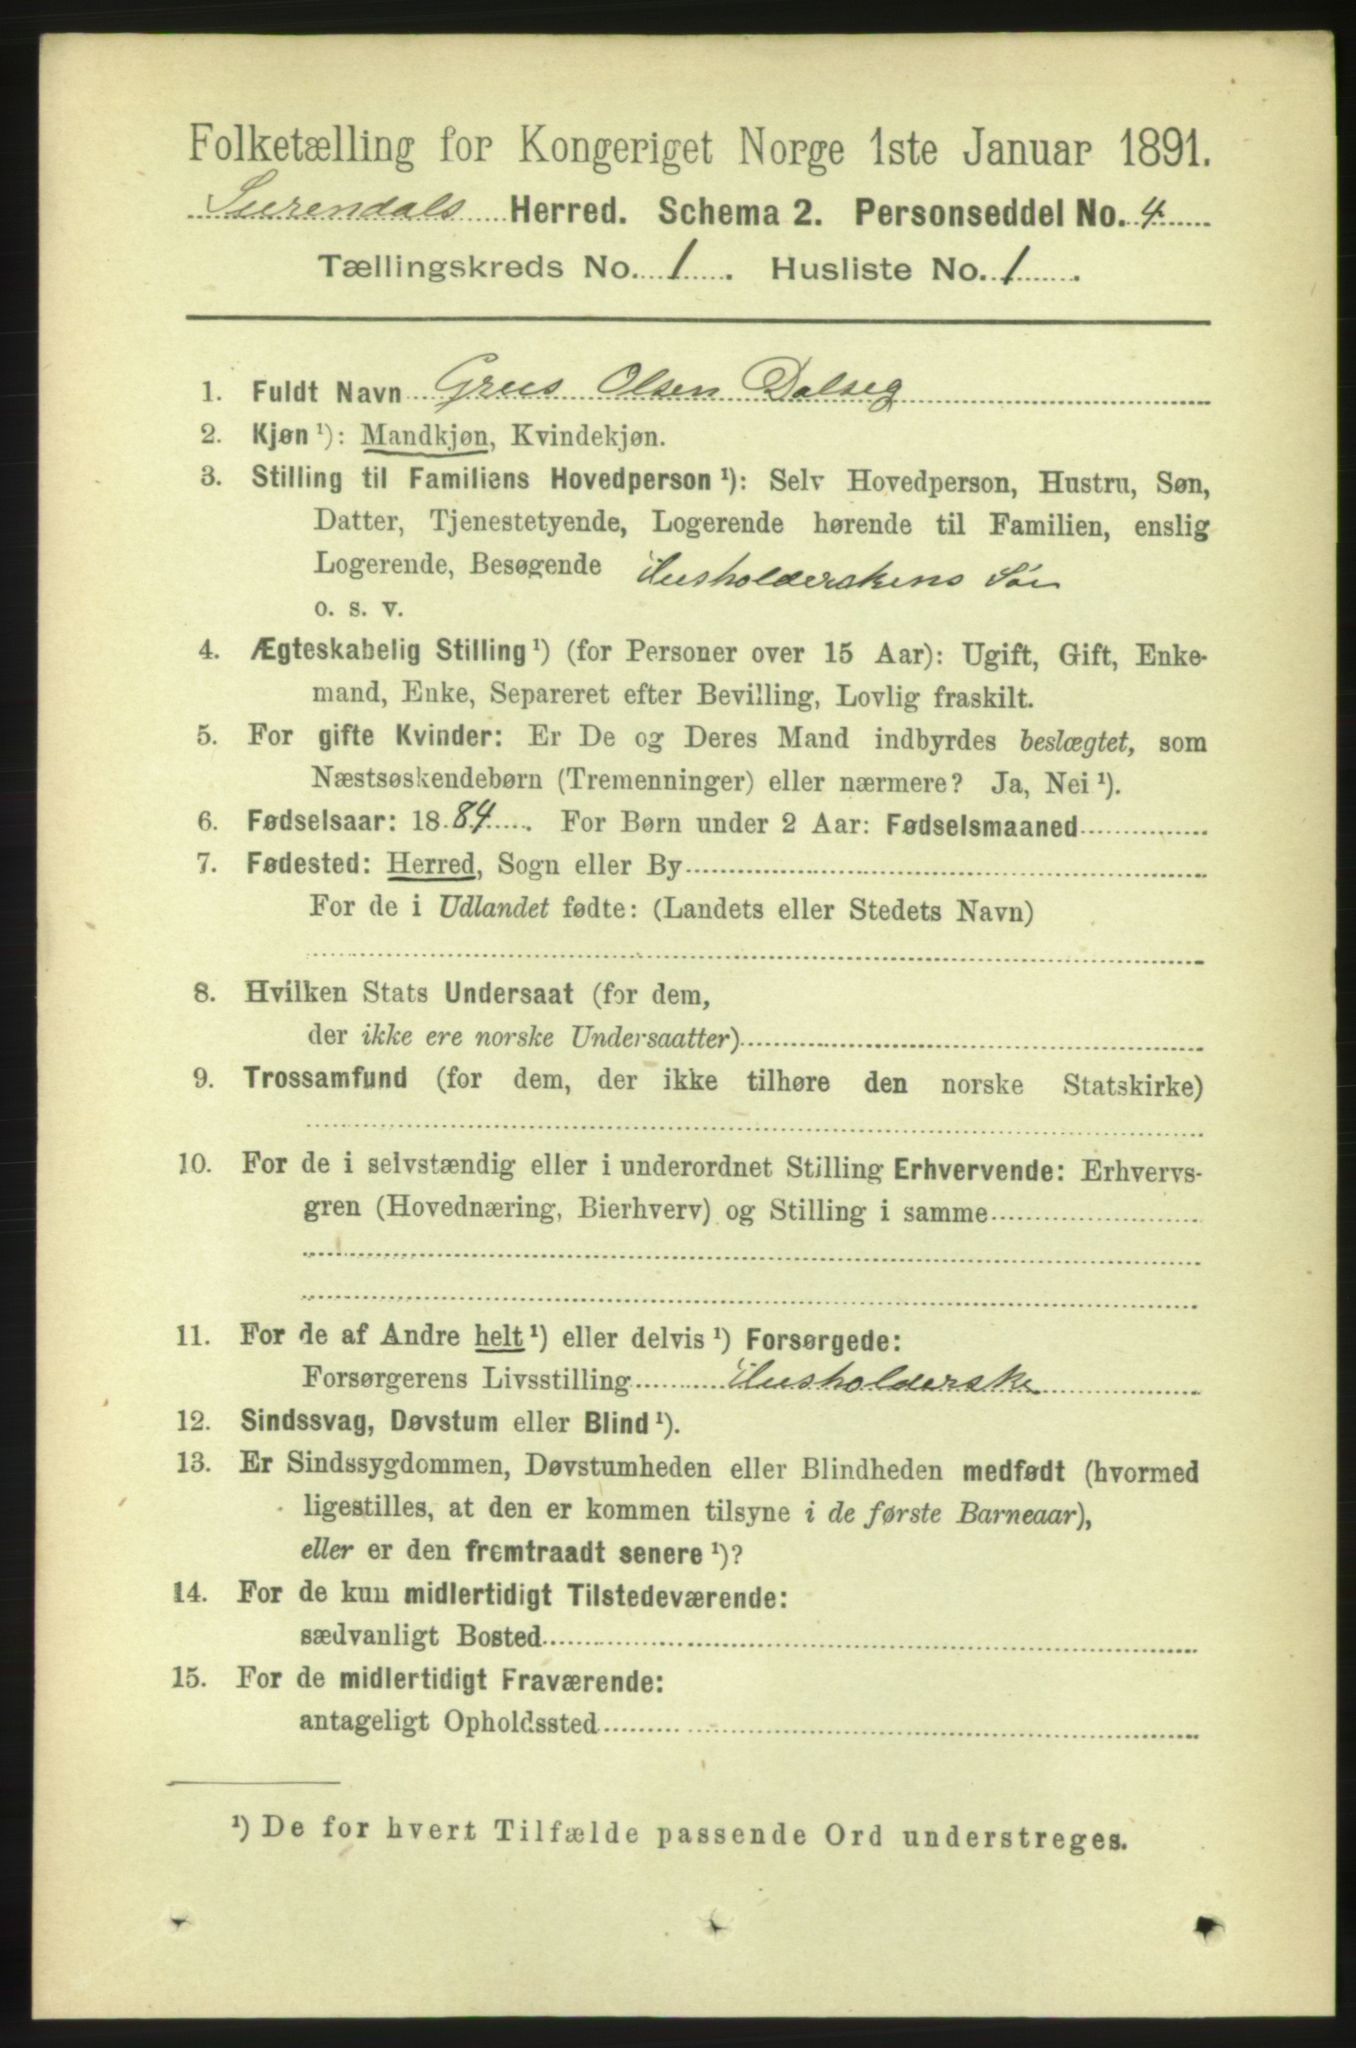 Folketælling for Kongeriget Norge 1ste Januar 1891.
Surendals Herred. Schema 2. Personseddel No. 4
Tællingskreds No. 1. Husliste No. 1.
1. Fuldt Navn Olsen Dalseg
2. Kjøn ¹): Mandkjøn, Kvindekjøn.
3. Stilling til Familiens Hovedperson ¹): Selv Hovedperson, Hustru, Søn,
Datter, Tjenestetyende, Logerende hørende til Familien, enslig
Logerende, Besøgende Husholderskens Søn
o. s. v.
4. Ægteskabelig Stilling ¹) (for Personer over 15 Aar): Ugift, Gift, Enke-
mand, Enke, Separeret efter Bevilling, Lovlig fraskilt.
5. For gifte Kvinder: Er De og Deres Mand indbyrdes beslægtet, som
Næstsøskendebørn (Tremenninger) eller nærmere? Ja, Nei ¹).
6. Fødselsaar: 1884. For Børn under 2 Aar: Fødselsmaaned
7. Fødested: Herred, Sogn eller By
For de i Udlandet fødte: (Landets eller Stedets Navn)
8. Hvilken Stats Undersaat (for dem,
der ikke ere norske Undersaatter)
9. Trossamfund (for dem, der ikke tilhøre den norske Statskirke)
10. For de i selvstændig eller i underordnet Stilling Erhvervende: Erhvervs-
gren (Hovednæring, Bierhverv) og Stilling i samme
11. For de af Andre helt ¹) eller delvis ¹) Forsørgede:
Forsørgerens Livsstilling Husholderske
12. Sindssvag, Døvstum eller Blind ¹).
13. Er Sindssygdommen, Døvstumheden eller Blindheden medfødt (hvormed
ligestilles, at den er kommen tilsyne i de første Barneaar),
eller er den fremtraadt senere ¹)?
14. For de kun midlertidigt Tilstedeværende:
sædvanligt Bosted
15. For de midlertidigt Fraværende:
antageligt Opholdssted
¹) De for hvert Tilfælde passende Ord understreges.